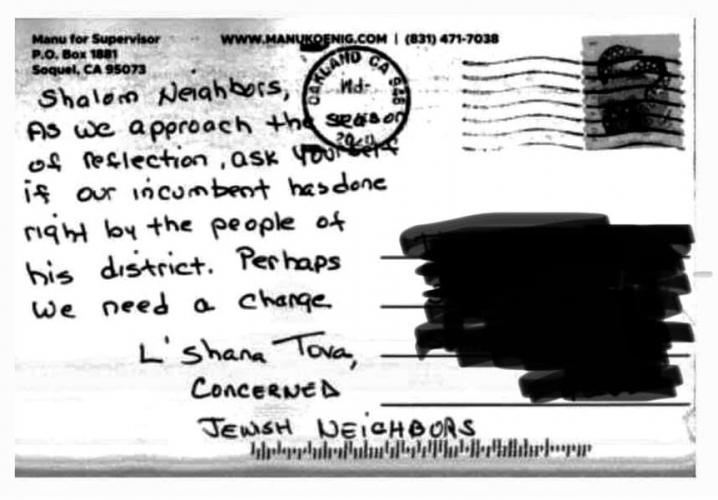 Manu for Supervisor
P.O. Box 1881
Soquel, CA 95073
WWW.MANUKOENIG.COM | (831) 471-7038
OAKLAND CA 946
Shalom Neighbors,
As we approach the season
of reflection, ask yourself
if our incumbent has done
right by the people of
his district. Perhaps
we need a change
L'Shana Tova,
CONCERNED
JEWISH NEIGHBORS